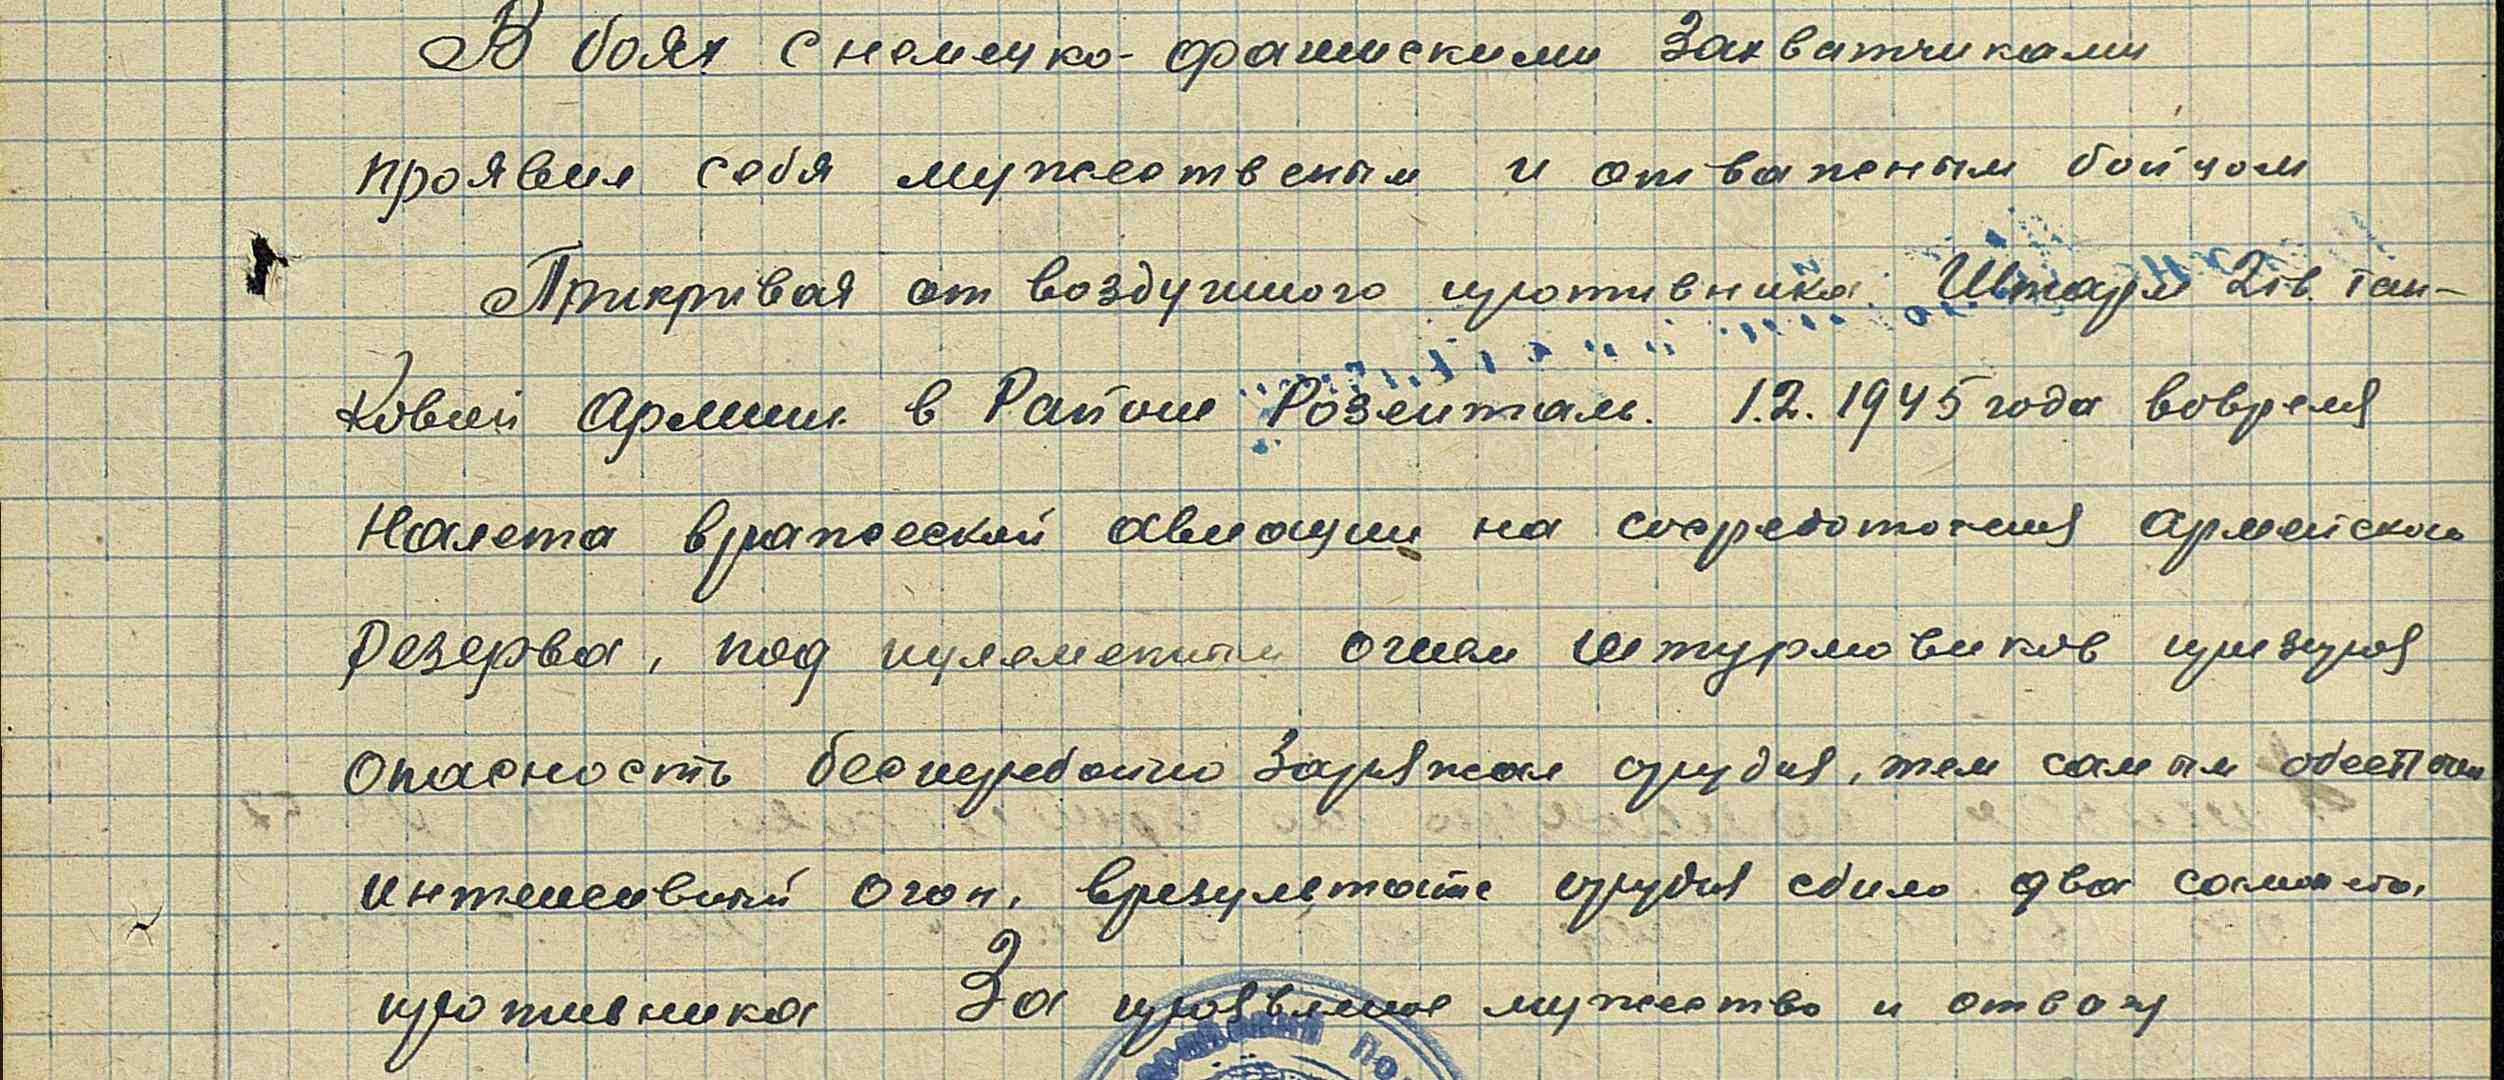 В боях с немецко-фашискими захватчиками
проявил себя мужествены́м и отважным бойцом
Прикрывая от воздушного противника Штарм 2 гв. тан-
ковой Армии в Районе Розенталь. 1.2.1945 года вовремя
налета вражеской авиации на сосредоточения армейского
резерва, под пулеметным огнем штурмовиков презирая
опасность бесперебойно заряжал орудия, тем самым обеспечил
интенсивный огон, врезультате орудия сбило два самолета
противника За проявленое мужество и отвагу